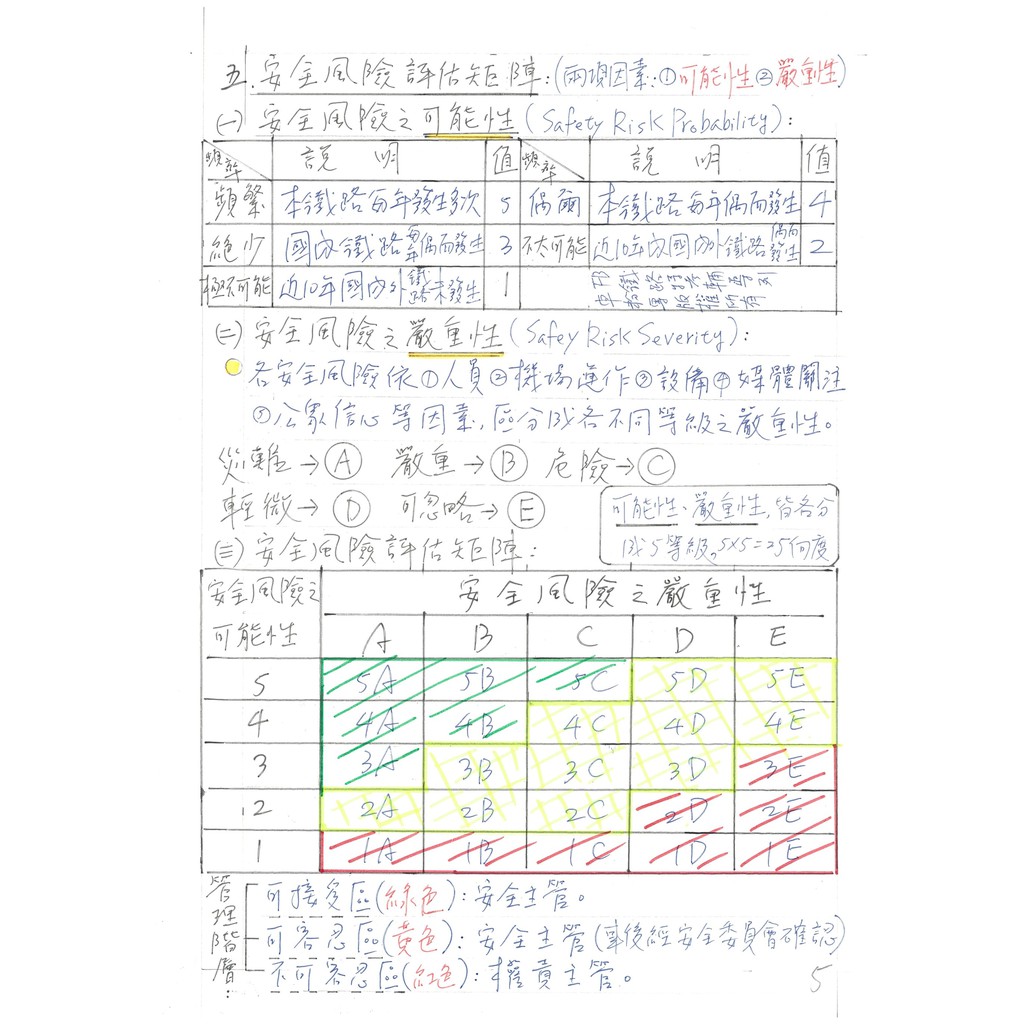 五、安全風險評估矩陣:(兩項因素:①可能性②嚴重性)
(一) 安全風險之可能性(Safety Risk Probability):
頻率 說明 值 頻率 說明 值
頻繁 本鐵路每年發生多次 5 偶爾 本鐵路每年偶而發生 4
絕少 國內鐵路每年偶而發生 3 不太可能 近10年內國內外鐵路偶而發生 2
極不可能 近10年國內外鐵路未發生 1
(二) 安全風險之嚴重性(Safey Risk Severity):
各安全風險依①人員②機場運作③設備④媒體關注
⑤公眾信心等因素,區分成各不同等級之嚴重性。
災難→Ⓐ 嚴重→Ⓑ 危險→Ⓒ
輕微→Ⓓ 可忽略→Ⓔ
可能性、嚴重性,皆各分
成5等級。5×5=25何度
(三) 安全風險評估矩陣:
安全風險之可能性 安全風險之嚴重性
A B C D E
5 5A 5B 5C 5D 5E
4 4A 4B 4C 4D 4E
3 3A 3B 3C 3D 3E
2 2A 2B 2C 2D 2E
1 1A 1B 1C 1D 1E
管理階層:
可接受區(綠色):安全主管。
可容忍區(黃色):安全主管(事後經安全委員會確認)
不可容忍區(紅色):權責主管。
5